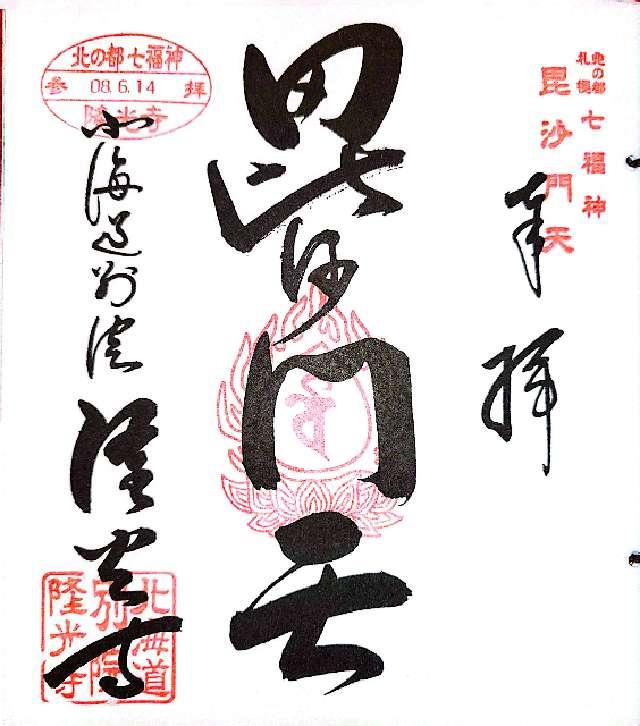 北の都
札幌
七福神
毘沙門天
奉拝
毘沙門天
北の都七福神
参 08.6.14 拝
隆光寺
北海道別院
隆光寺
北海道
別院
隆光寺